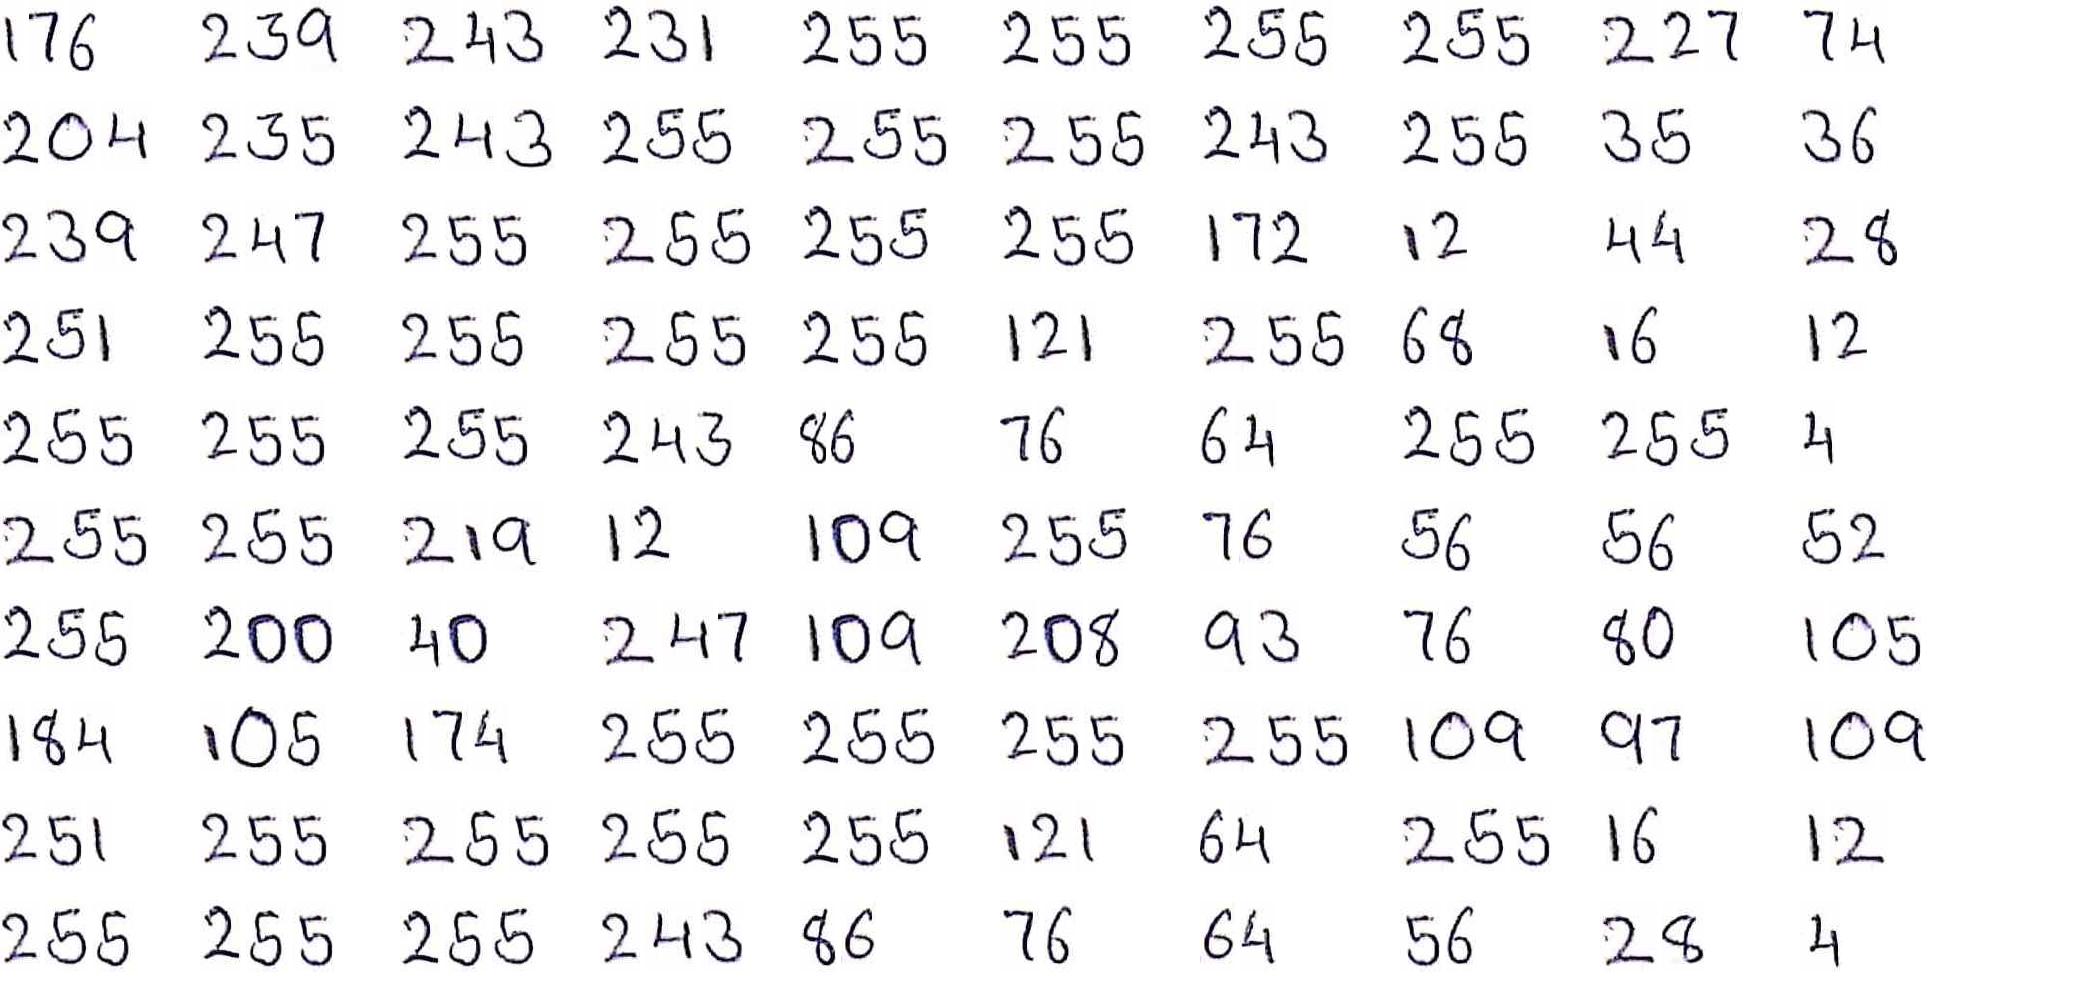 176 239 243 231 255 255 255 255 227 74
204 235 243 255 255 255 243 255 35 36
239 247 255 255 255 255 172 12 44 28
251 255 255 255 255 121 255 68 16 12
255 255 255 243 86 76 64 255 255 4
255 255 219 12 109 255 76 56 56 52
255 200 40 247 109 208 93 76 80 105
184 105 174 255 255 255 255 109 97 109
251 255 255 255 255 121 64 255 16 12
255 255 255 243 86 76 64 56 28 4